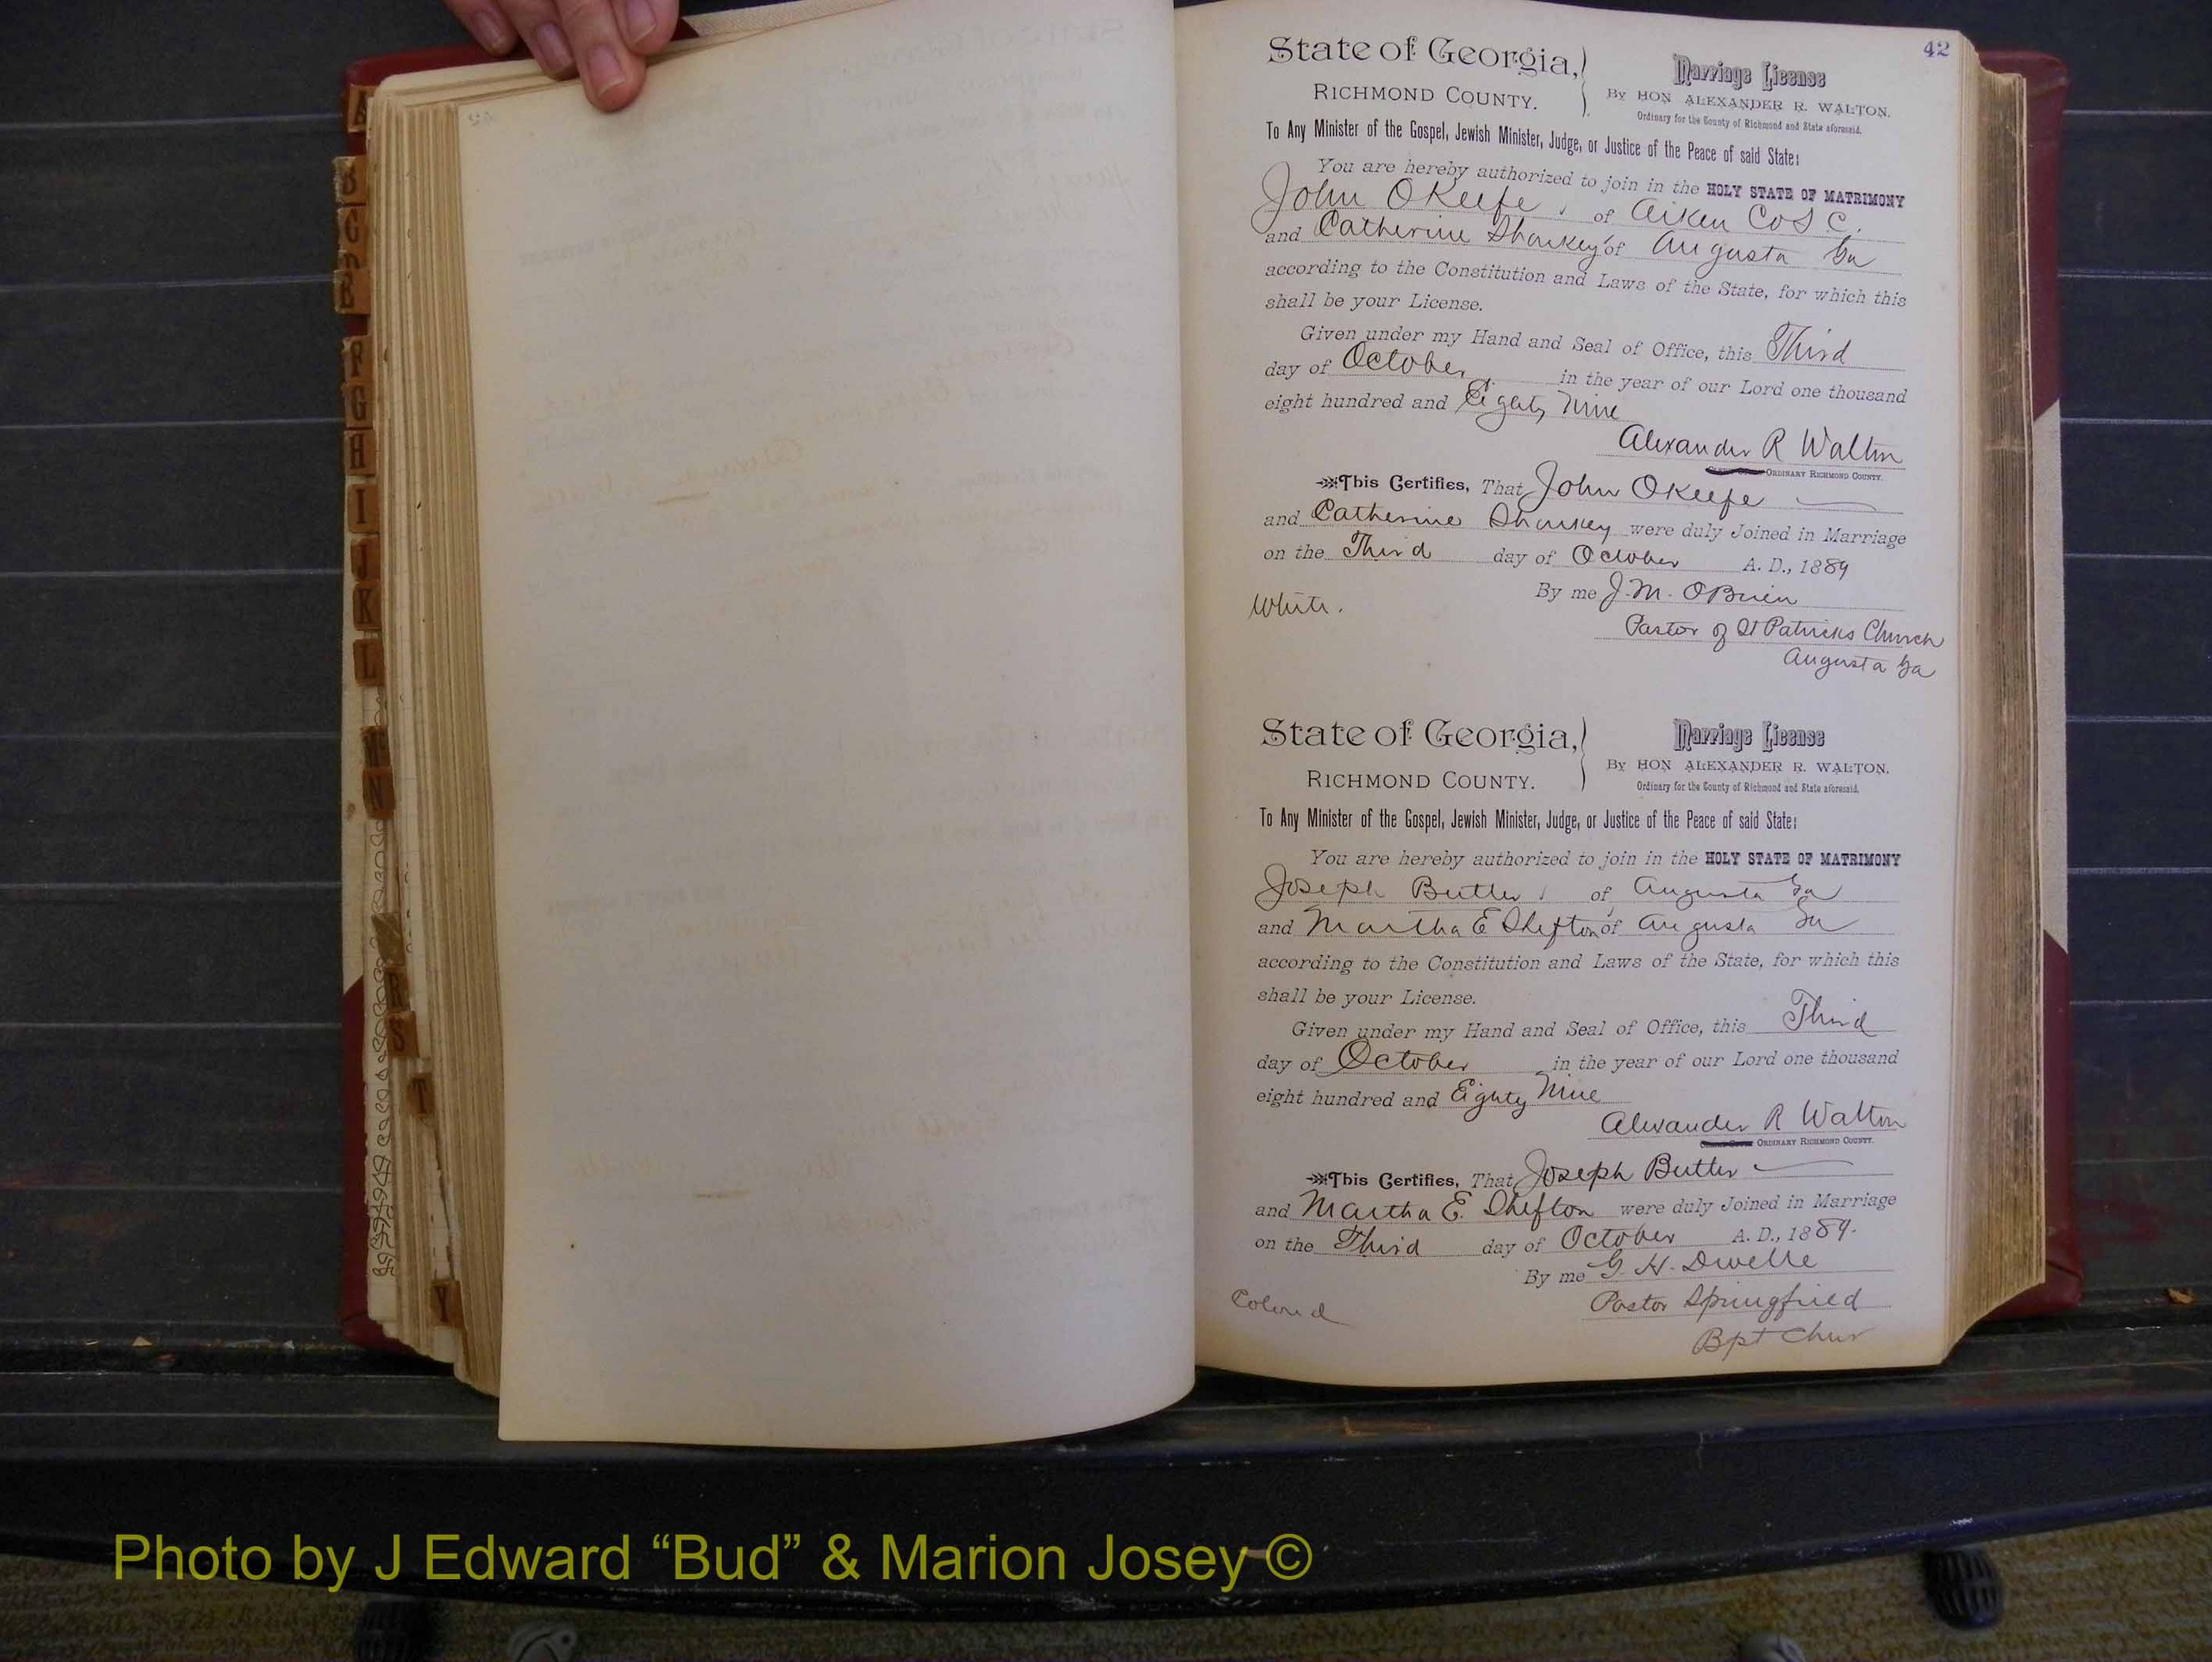 42
State of Georgia,
RICHMOND COUNTY.
Marriage License
By HON ALEXANDER R. WALTON.
Ordinary for the County of Richmond and State aforesaid.
To Any Minister of the Gospel, Jewish Minister, Judge, or Justice of the Peace of said State:
You are hereby authorized to join in the HOLY STATE OF MATRIMONY
John OKeefe, of Aiken Co S.C.
and Catherine Sharkey of Augusta Ga
according to the Constitution and Laws of the State, for which this
shall be your License.
Given under my Hand and Seal of Office, this Third
day of October, in the year of our Lord one thousand
eight hundred and Eighty Nine
Alexander R Walton
ORDINARY RICHMOND COUNTY.
This Certifies, That John OKeefe
and Catherine Sharkey were duly Joined in Marriage
on the Third day of October A. D., 1889
By me J. M. OBrien
White.
Pastor of St Patricks Church
Augusta Ga
State of Georgia,
RICHMOND COUNTY.
Marriage License
By HON ALEXANDER R. WALTON.
Ordinary for the County of Richmond and State aforesaid.
To Any Minister of the Gospel, Jewish Minister, Judge, or Justice of the Peace of said State:
You are hereby authorized to join in the HOLY STATE OF MATRIMONY
Joseph Butler, of Augusta Ga
and Martha E Shefton of Augusta Ga
according to the Constitution and Laws of the State, for which this
shall be your License.
Given under my Hand and Seal of Office, this Third
day of October in the year of our Lord one thousand
eight hundred and Eighty Nine
Alexander R Walton
ORDINARY RICHMOND COUNTY.
This Certifies, That Joseph Butler
and Martha E. Shefton were duly Joined in Marriage
on the Third day of October A. D., 1889.
By me G. H. Dwelle
Colored
Pastor Springfield
Bpt Chur
A
B
C
D
E
F
G
H
I
J
K
L
M
N
R
S
T
Y
Photo by J Edward “Bud” & Marion Josey ©